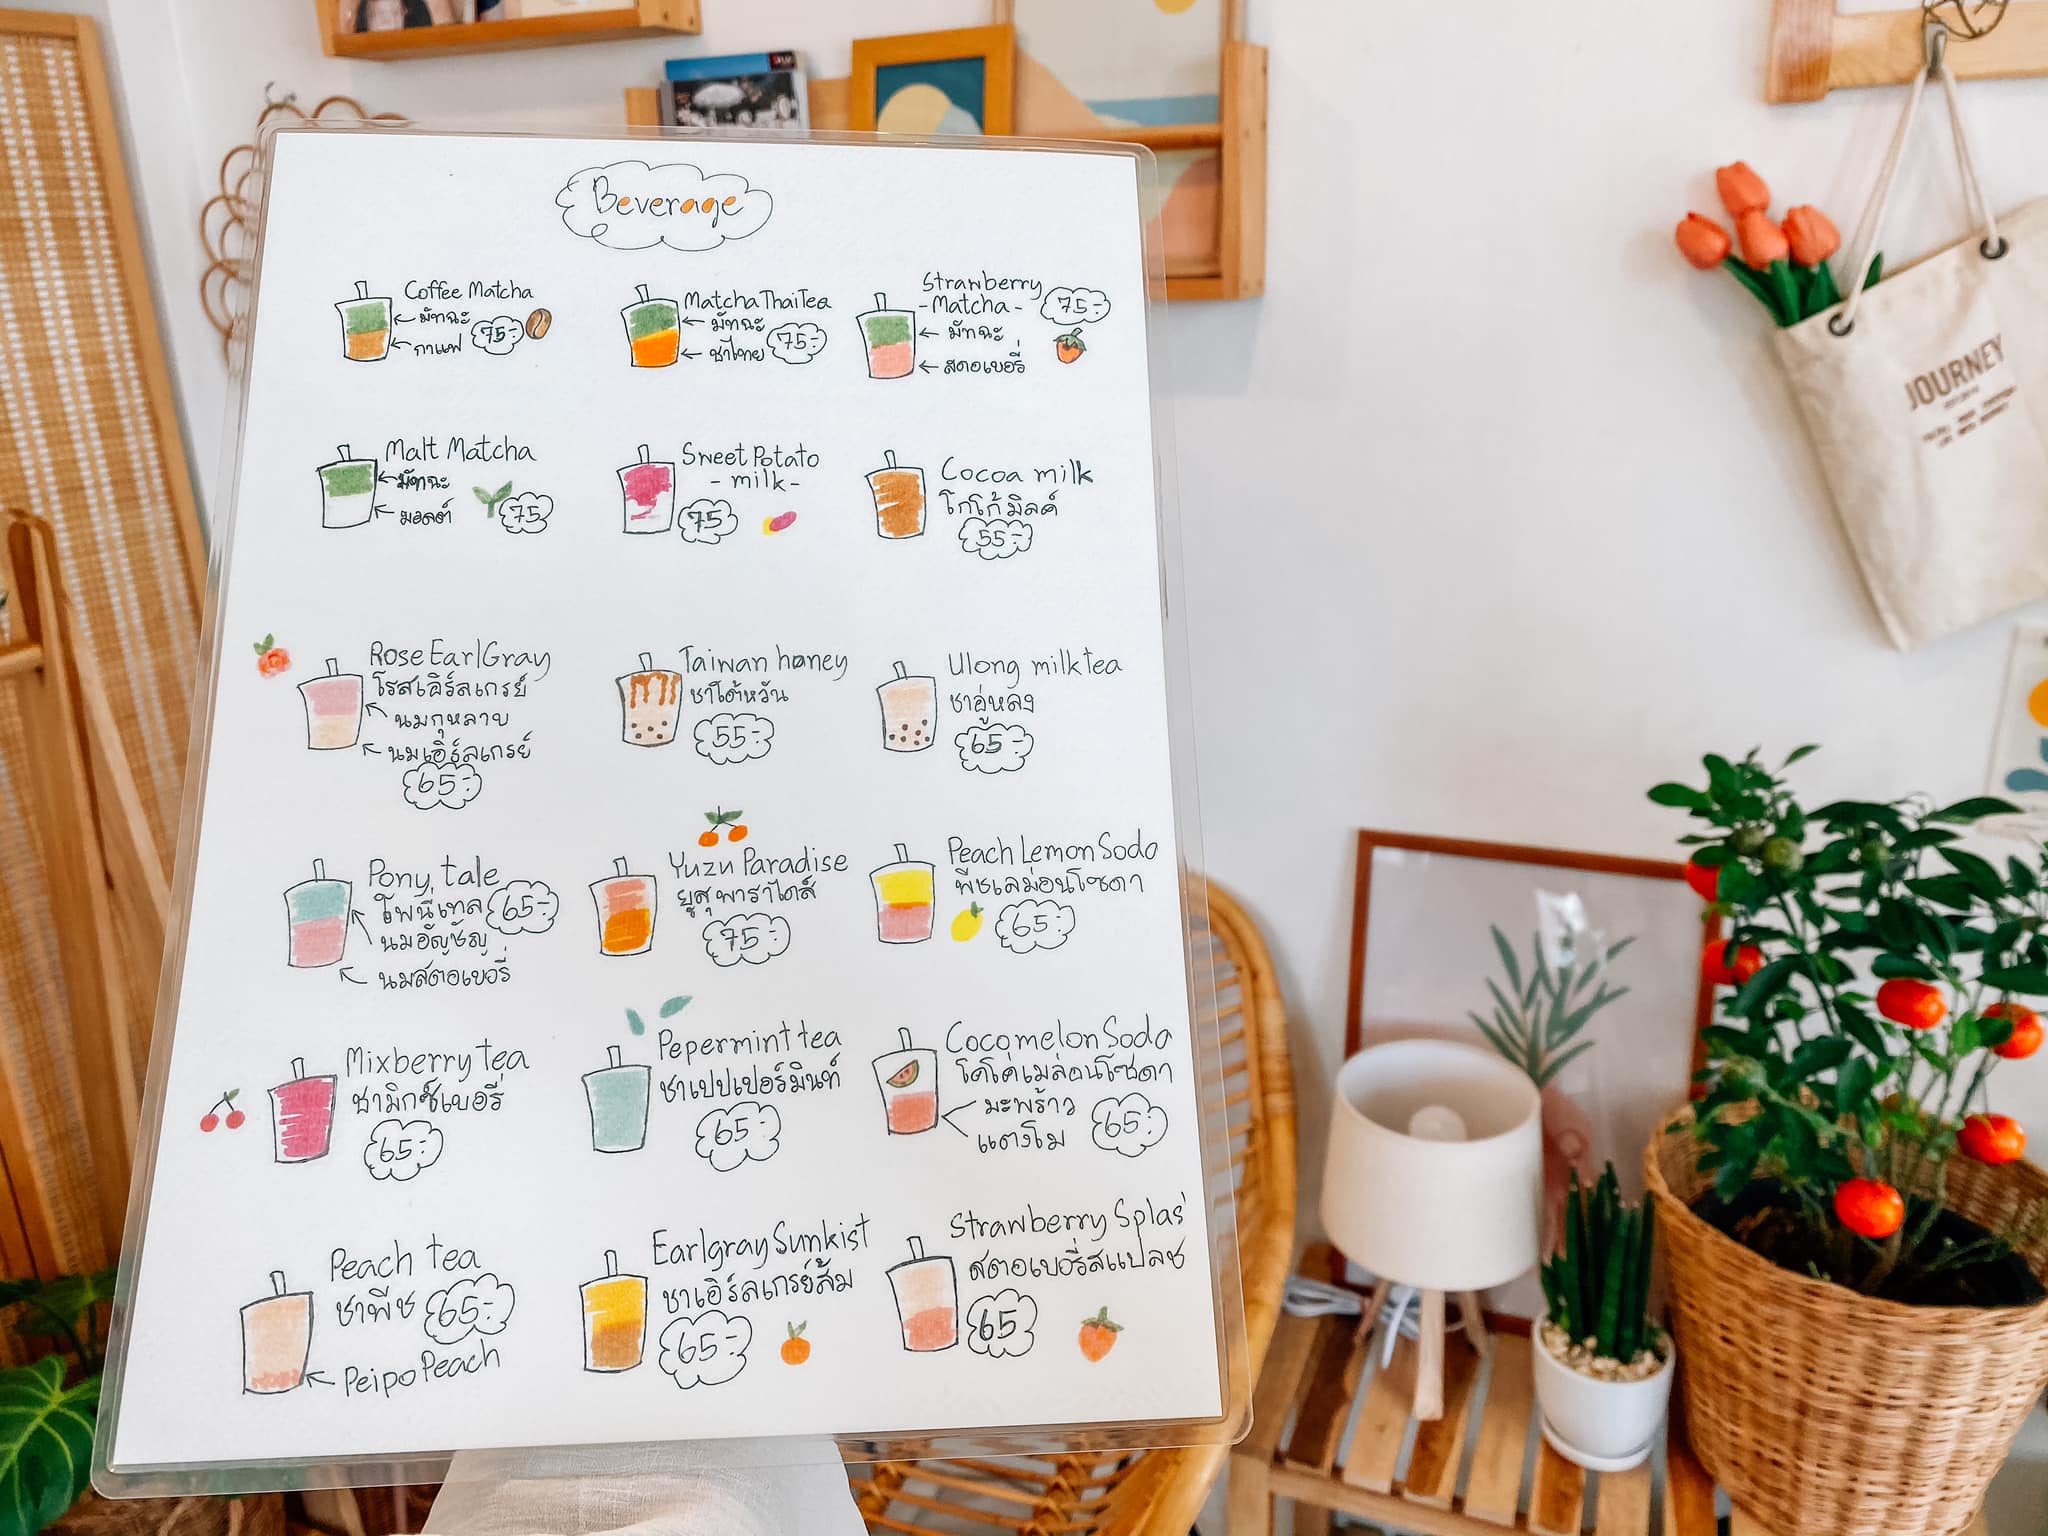 Beverage
Coffee Matcha
มัทฉะ
กาแฟ
75.-
Matcha Thai Tea
มัทฉะ
ชาไทย
75.-
Strawberry
- Matcha -
75.-
มัทฉะ
สตอเบอรี่
Malt Matcha
มัทฉะ
มอลต์
75
Sweet Potato
- milk -
75
Cocoa milk
โกโก้มิลค์
55.-
Rose Earl Gray
โรสเอิร์ลเกรย์
นมกุหลาบ
นมเอิร์ลเกรย์
65.-
Taiwan honey
ชาไต้หวัน
55.-
Ulong milk tea
ชาอู่หลง
65.-
Pony tale
โพนี่เทล
65.-
นมอัญชัญ
นมสตอเบอรี่
Yuzu Paradise
ยูสุพาราไดส์
75.-
Peach Lemon Soda
พีชเลม่อนโซดา
65.-
Mixberry tea
ชามิกซ์เบอรี่
65.-
Pepermint tea
ชาเปปเปอร์มินท์
65.-
Cocomelon Soda
โคโค่เมล่อนโซดา
มะพร้าว
แตงโม
65.-
Peach tea
ชาพีช
65.-
Peipo Peach
Earlgray Sunkist
ชาเอิร์ลเกรย์ส้ม
65.-
Strawberry Splas
สตอเบอรี่สแปลช
65
JOURNEY